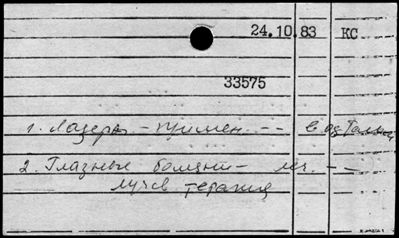 24.10.83 КС
33575
1. Лазеры - примен. -- в
2. Глазные болезни - леч. --
лучев терапия